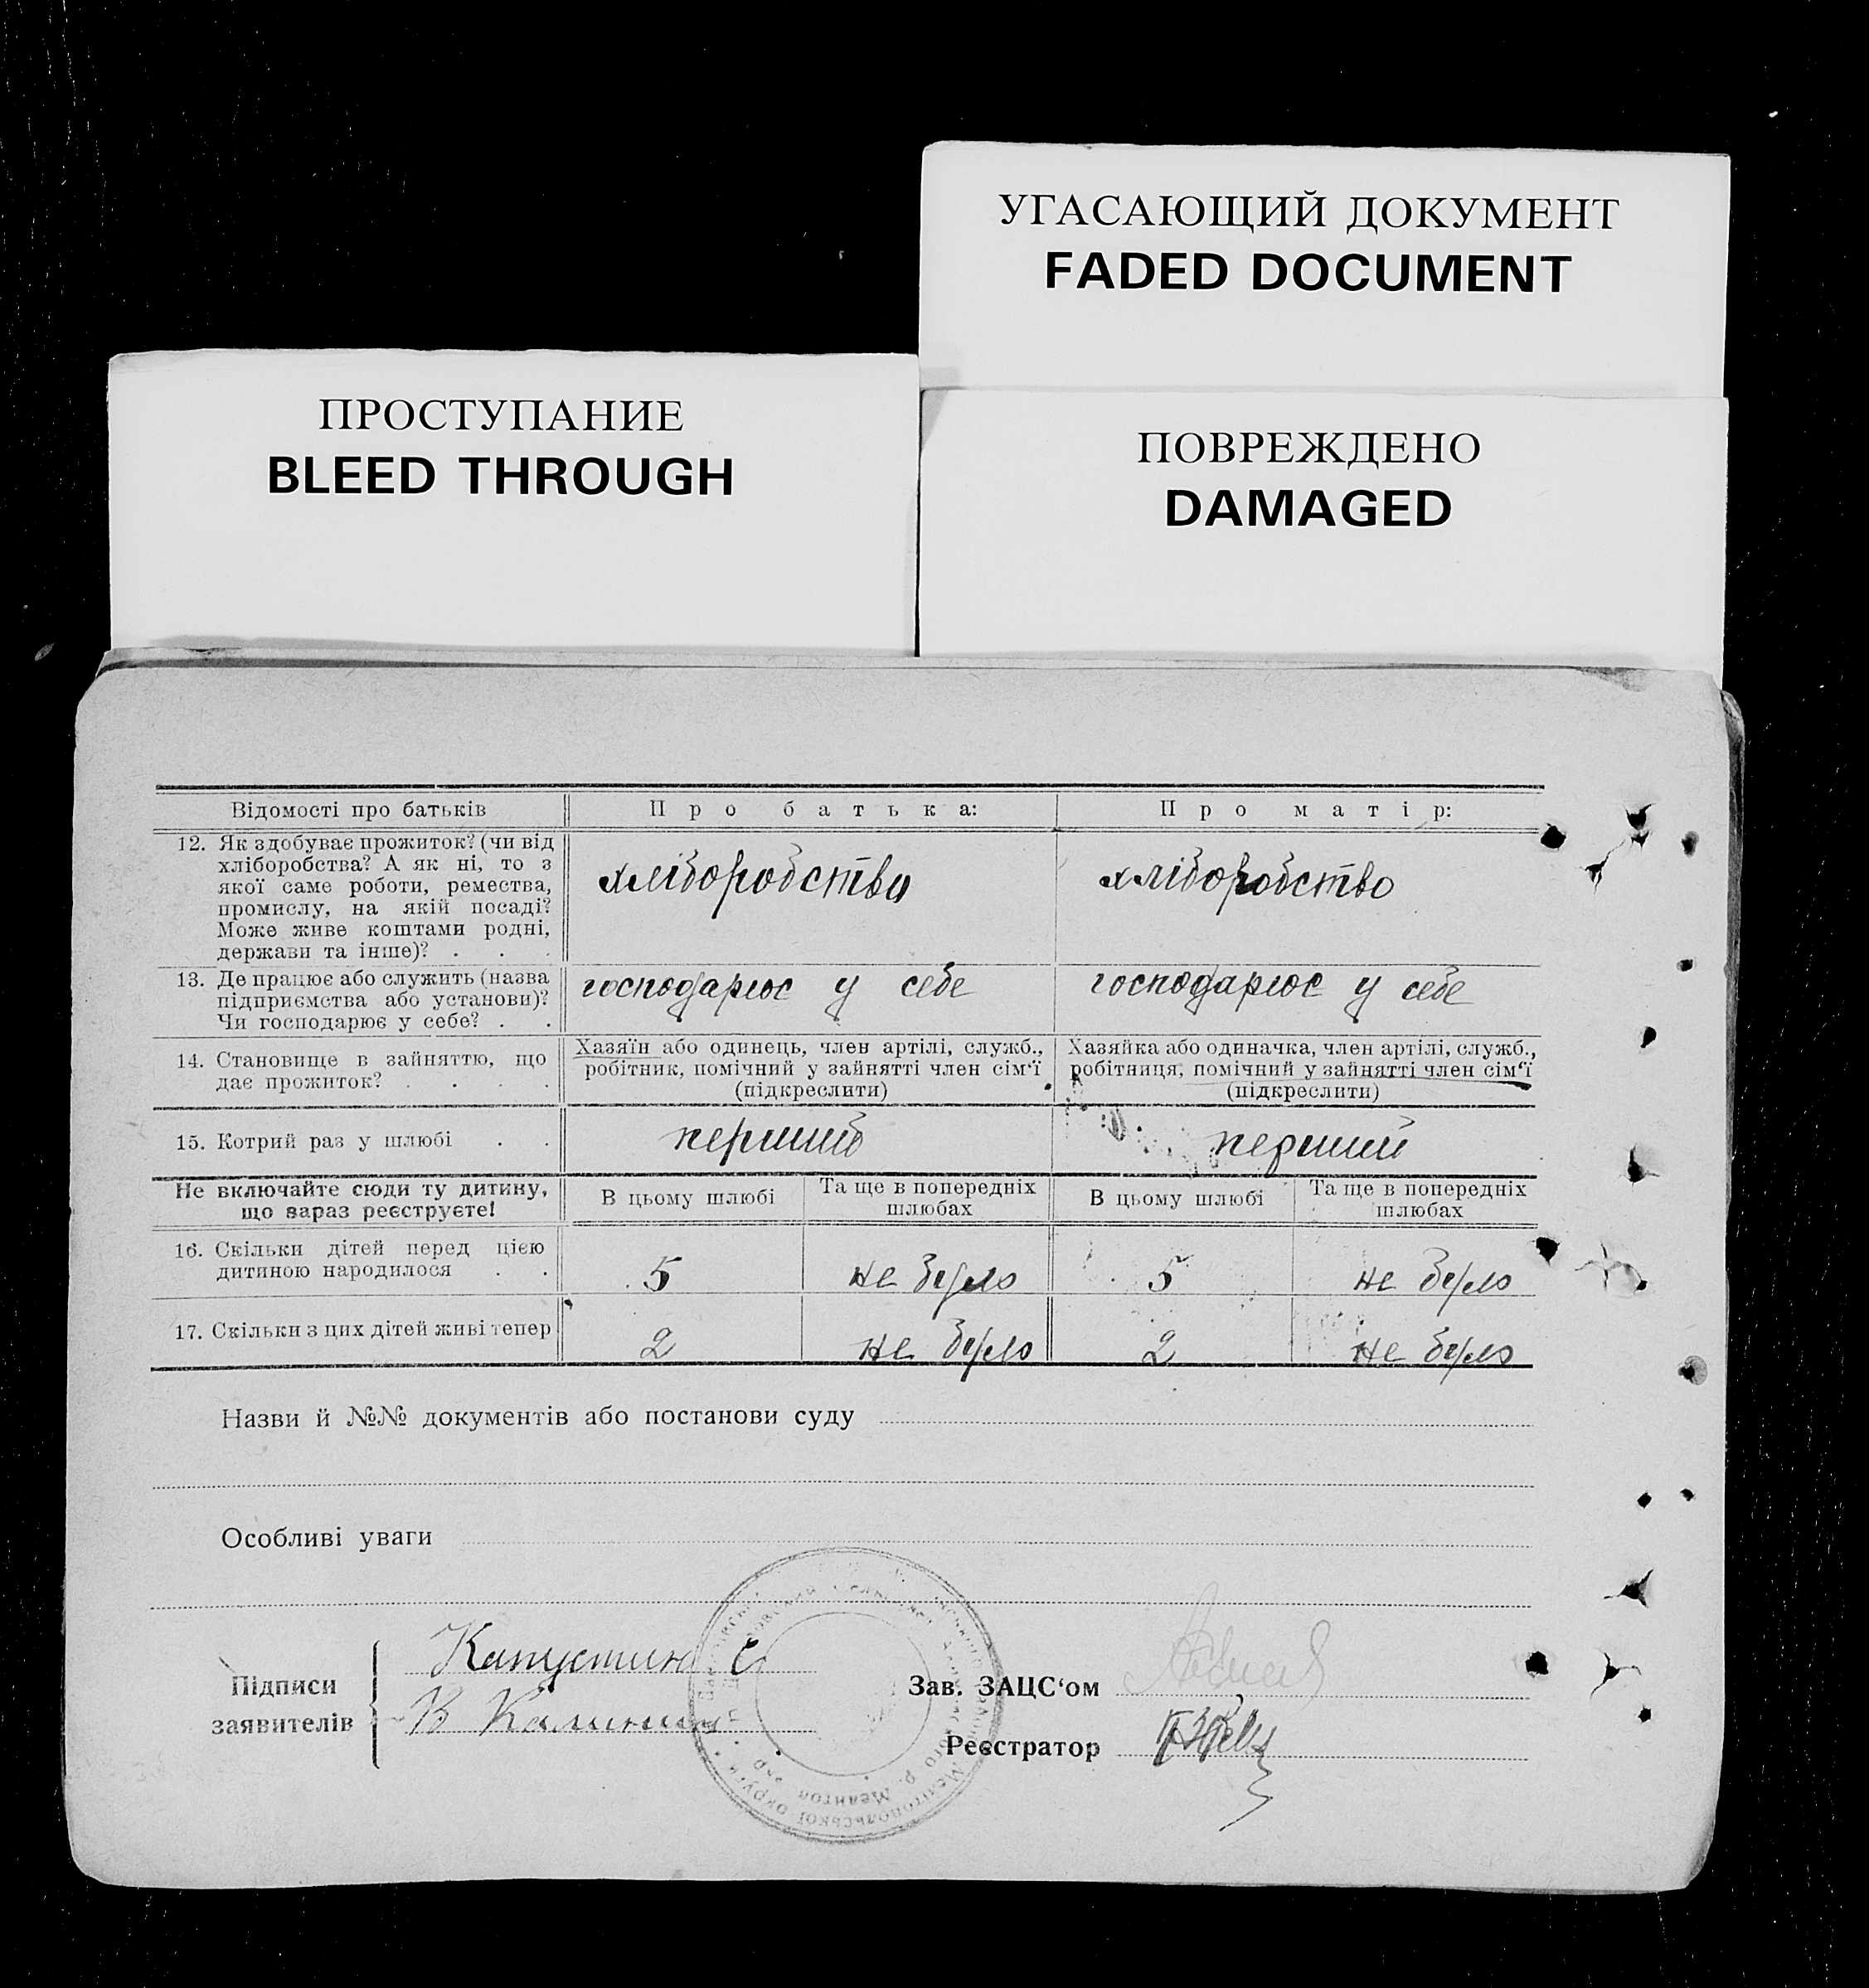 УГАСАЮЩИЙ ДОКУМЕНТ
FADED DOCUMENT
ПРОСТУПАНИЕ
BLEED THROUGH
ПОВРЕЖДЕНО
DAMAGED
Відомості про батьків
Про батька:
Про матір:
12. Як здобуває прожиток? (чи від
хліборобства? А як ні, то з
якої саме роботи, ремества,
промислу, на якій посаді?
Може живе коштами родні,
держави та інше)? . . .
хліборобство
хліборобство
13. Де працює або служить (назва
підприємства або установи)?
Чи господарює у себе? . .
господарює у себе
господарює у себе
14. Становище в зайняттю, що
дає прожиток? . . . .
Хазяїн або одинець, член артілі, служб.,
робітник, помічний у зайнятті член сім'ї
(підкреслити)
Хазяйка або одиначка, член артілі, служб.,
робітниця, помічний у зайнятті член сім'ї
(підкреслити)
15. Котрий раз у шлюбі . .
перший
перший
Не включайте сюди ту дитину,
що зараз реєструєте!
В цьому шлюбі
Та ще в попередніх
шлюбах
В цьому шлюбі
Та ще в попередніх
шлюбах
16. Скільки дітей перед цією
дитиною народилося . .
5
не було
5
не було
17. Скільки з цих дітей живі тепер
2
не було
2
не було
Назви й №№ документів або постанови суду
Особливі уваги
Підписи
заявителів
Капустин С
В Калинин
Зав. ЗАЦС'ом
Реєстратор
Мелітопольської округи